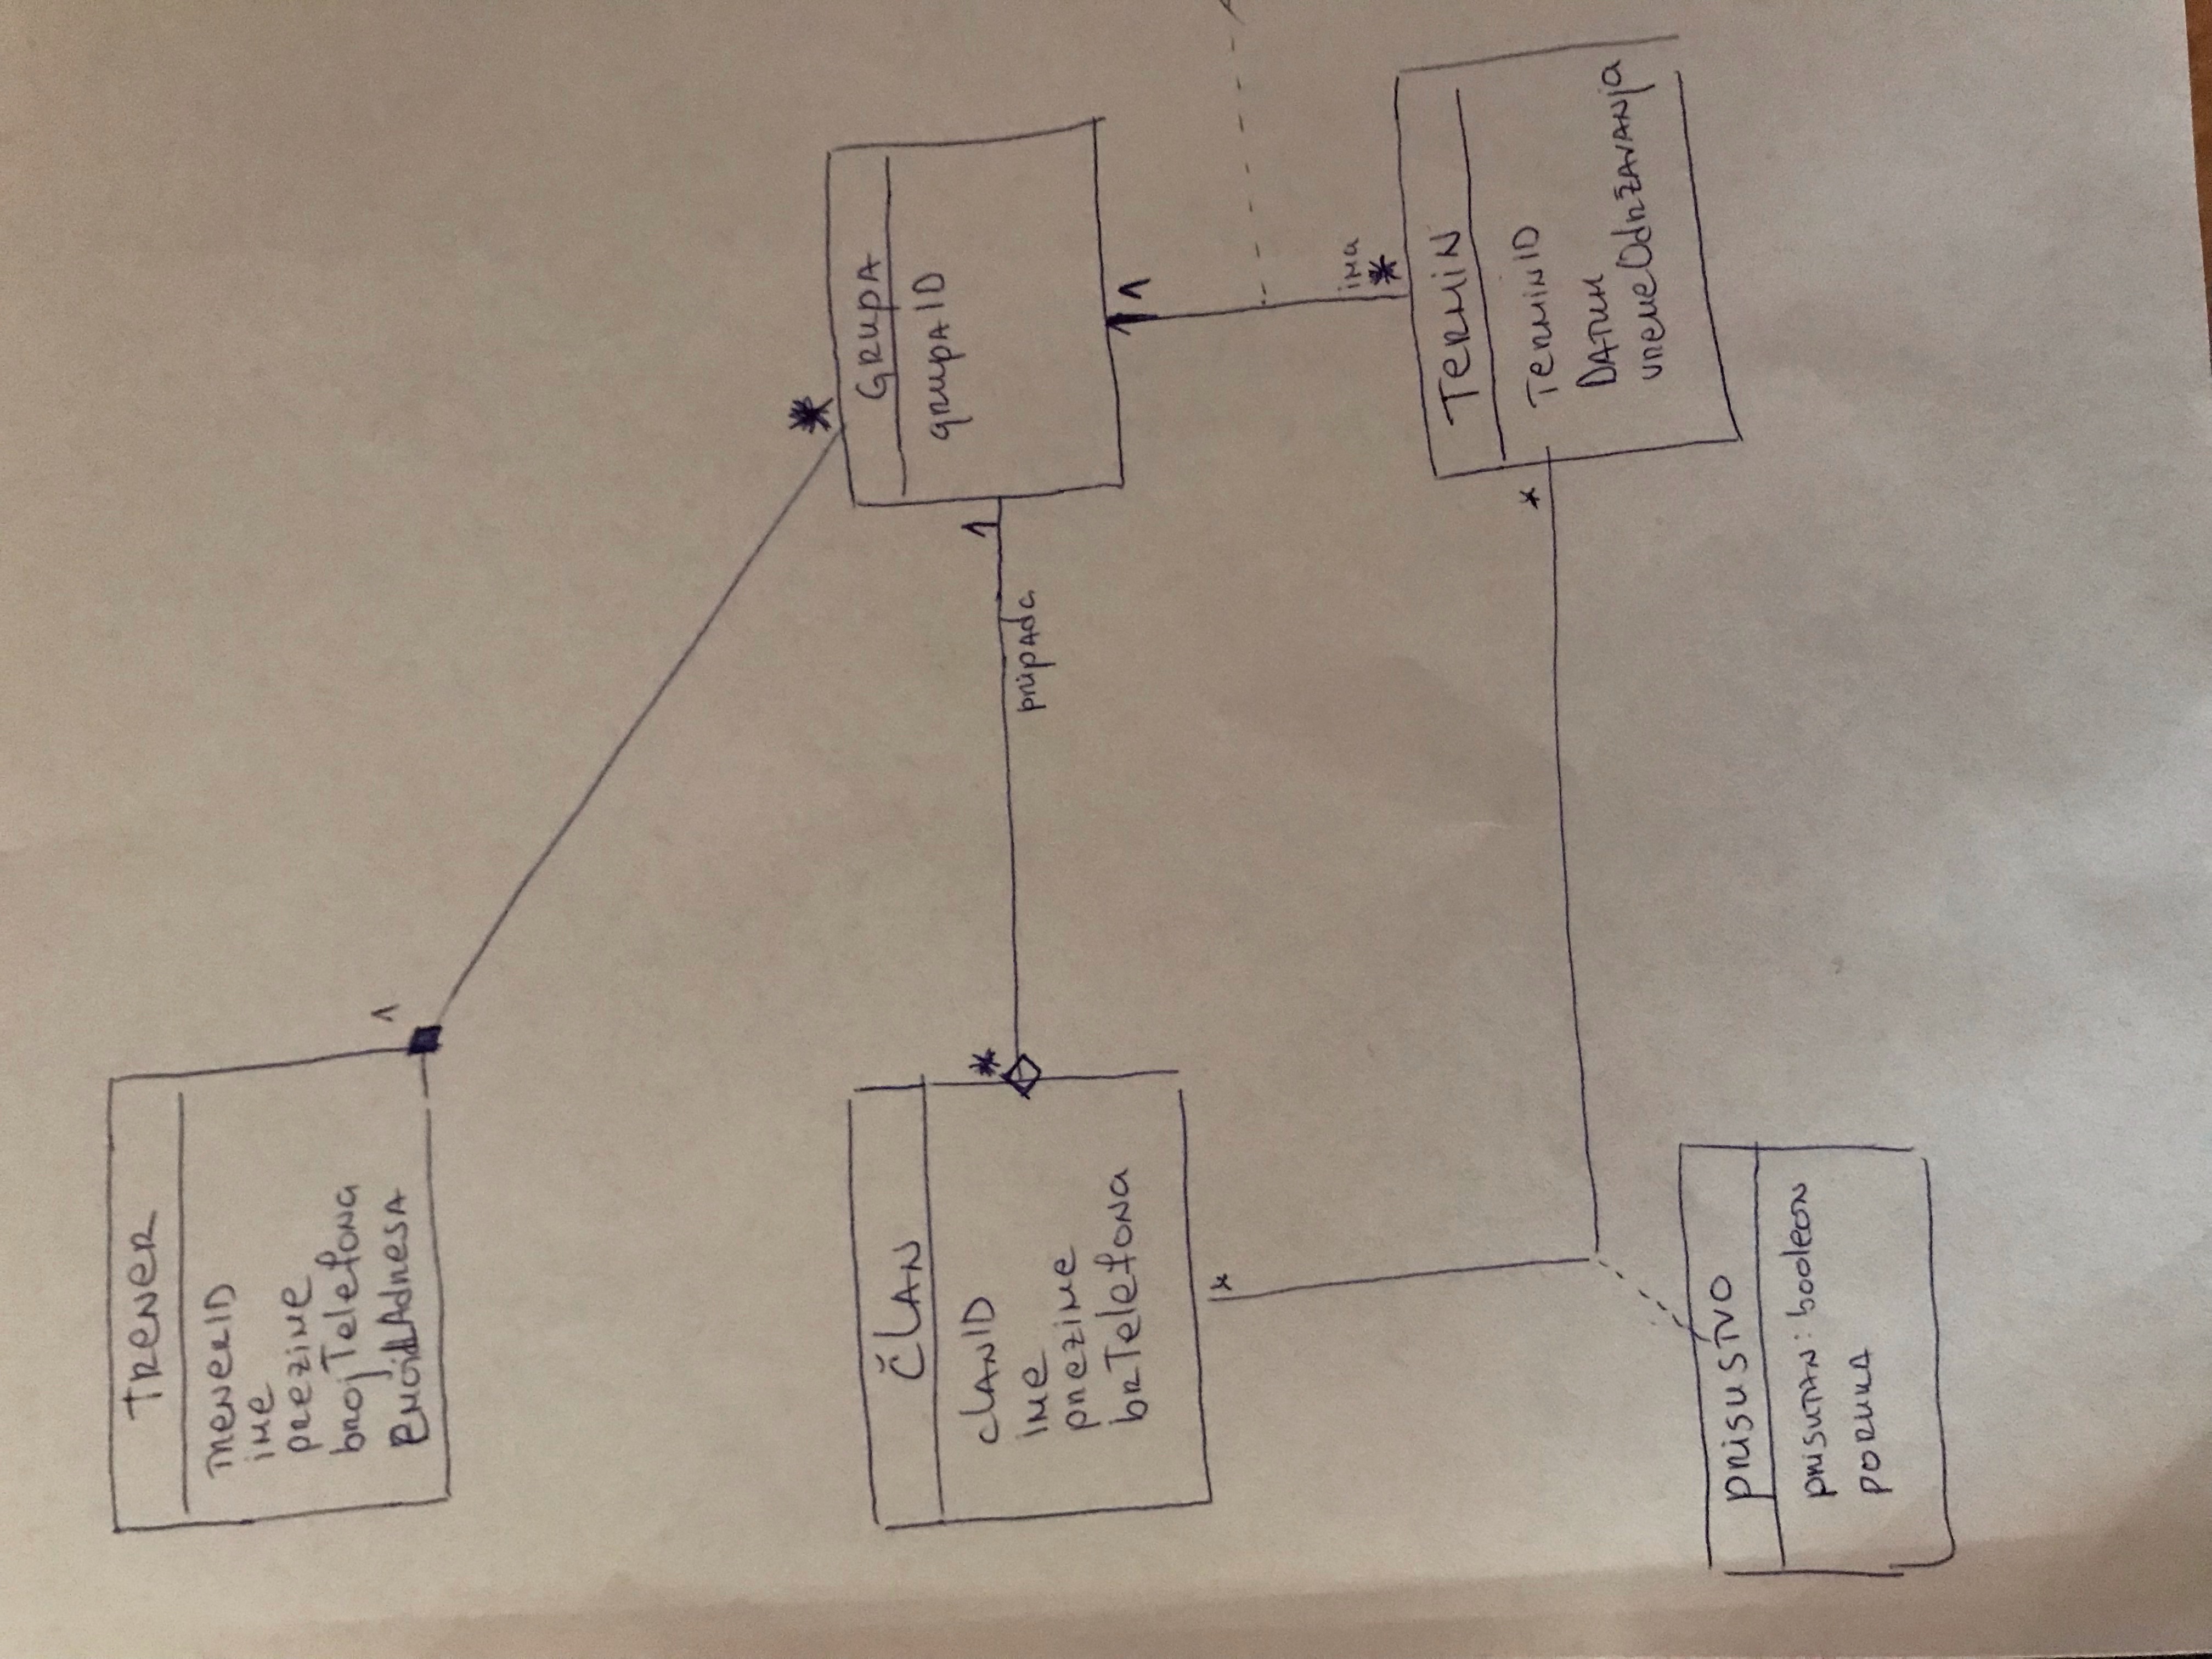 TRENER
TRENERID
iME
PREZIME
brojTelefona
EMailAdresA
1
*
GRUPA
grupAID
ČLAN
clANID
iME
prezime
brTelefona
*
1
pripada
1
*
ima
*
TERMIN
TERMINID
DATUM
vremeOdRŽAVANja
*
PRISUSTVO
PRISUTAN: boolean
PORUKA